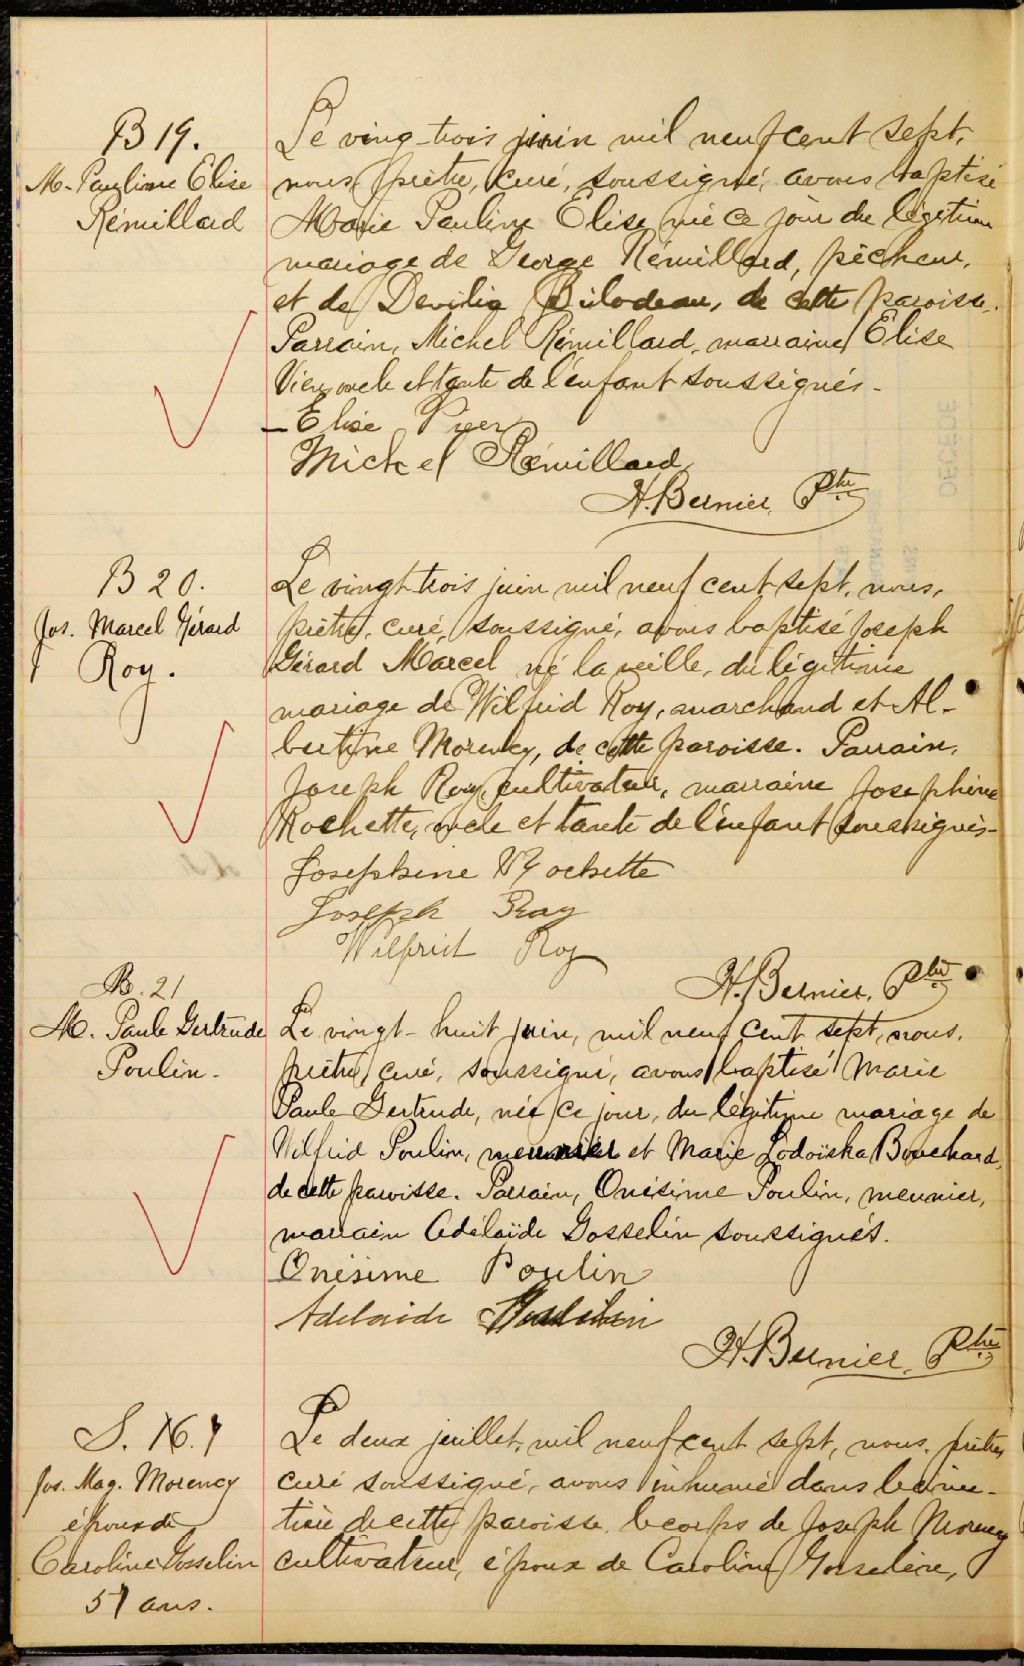 B 19.
M. Pauline Elise
Rémillard
Le ving-trois juin mil neuf cent sept,
nous, prêtre, curé, soussigné, avons baptisé
Marie Pauline Elise, née ce jour du légitime
mariage de George Rémillard, pêcheur,
et de Bilodeau, de cette paroisse.
Parrain, Michel Rémillard, marraine, Elise
oncle et tante de l'enfant soussignés.
Elise
Michel Rémillard
H. Bernier, Ptre
B 20.
Jos. Marcel Gérard
Roy.
Le vingt-trois juin mil neuf cent sept, nous,
prêtre, curé, soussigné, avons baptisé Joseph
Gérard Marcel né la veille, du légitime
mariage de Wilfrid Roy, marchand et Al-
bertine Morency, de cette paroisse. Parrain,
Joseph Roy, cultivateur, marraine Josephine
Rochette, oncle et tante de l'enfant soussignés-
Josephine Rochette
Joseph Roy
Wilfrid Roy
H. Bernier, Ptre
B. 21
M. Paule Gertrude
Poulin.
Le vingt-huit juin, mil neuf cent sept, nous,
prêtre, curé, soussigné, avons baptisé Marie
Paule Gertrude, née ce jour, du légitime mariage de
Wilfrid Poulin, meunier et Marie Lodoïska Bouchard,
de cette paroisse. Parrain, Onésime Poulin, meunier,
marrain Adélaïde Gosselin soussignés.
Onésime Poulin
Adelaide
H. Bernier, Ptre
S. 16.
Jos. Mag. Morency
époux de
Caroline Gosselin
57 ans.
Le deux juillet, mil neuf cent sept, nous, prêtre,
curé soussigné, avons inhumé dans le cime-
tière de cette paroisse, le corps de Joseph Morency
cultivateur, époux de Caroline Gosselin,